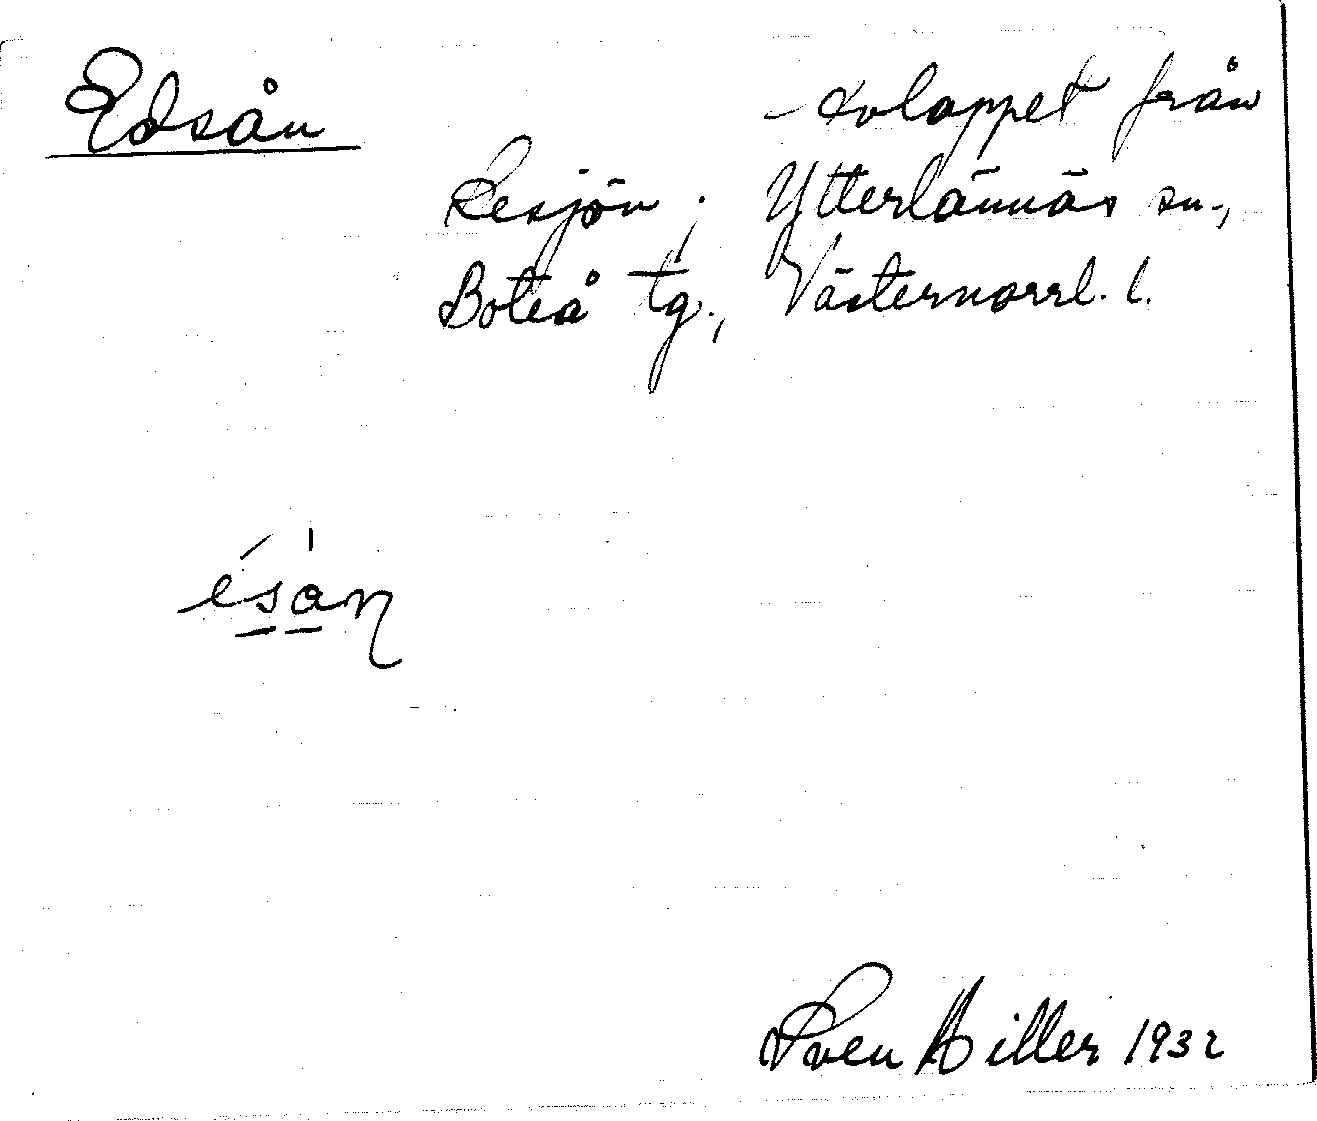 Edsån
- avloppet från
Lesjön; Ytterlännäs sn.,
Boteå tg., Västernorrl. l.
ésån
Sven Hiller 1932